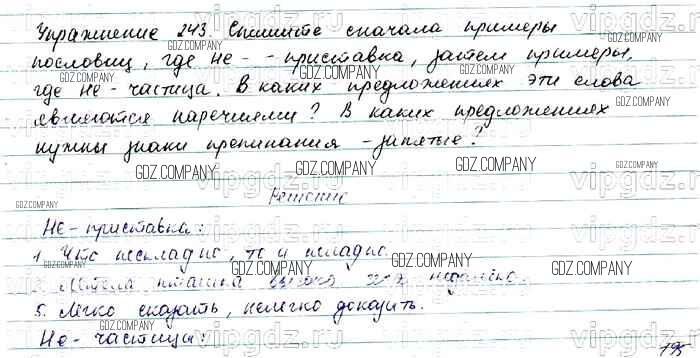 Упражнение 243. Спишите сначала примеры
пословиц, где не - - приставка, затем примеры,
где не - частица. В каких предложениях эти слова
являются наречиями? В каких предложениях
нужны знаки препинания - запятые?
Решение
Не - приставка:
1. Что нескладно, то и неладно.
недалеко.
5. Легко сказать, нелегко доказать.
Не - частица:
195
GDZ.COMPANY
vipgdz.ru